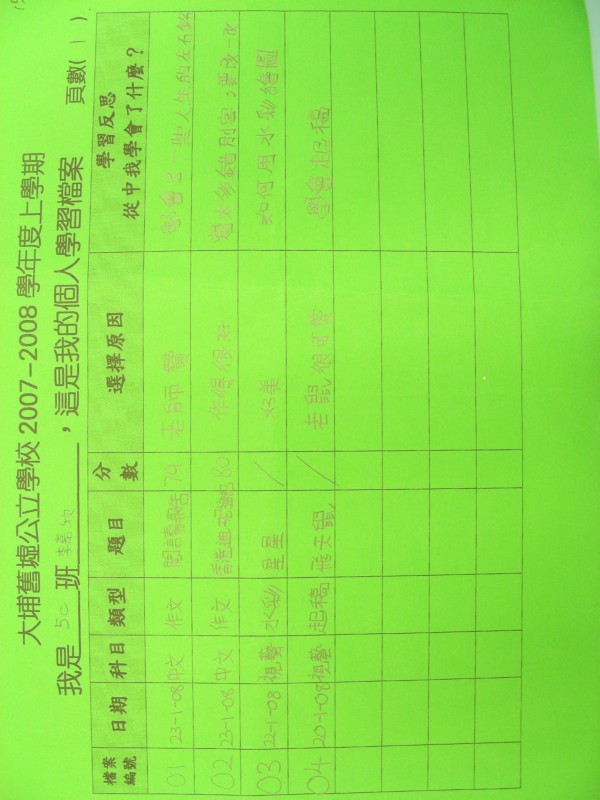 大埔舊墟公立學校 2007-2008 學年度上學期
我是 5C 班，這是我的個人學習檔案 頁數( 1 )
檔案編號 日期 科目 類型 題目 分數 選擇原因 學習反思 從中我學會了什麼？
01 23-1-08 中文 作文 閱讀報告 79 老師贊
02 23-1-08 中文 作文 80 作得很好
03 22-1-08 視藝 水彩 星星 / 好美 如何用水彩繪圖
04 20-1-08 視藝 起稿 飛天鼠 / 老鼠很可愛 學會起稿